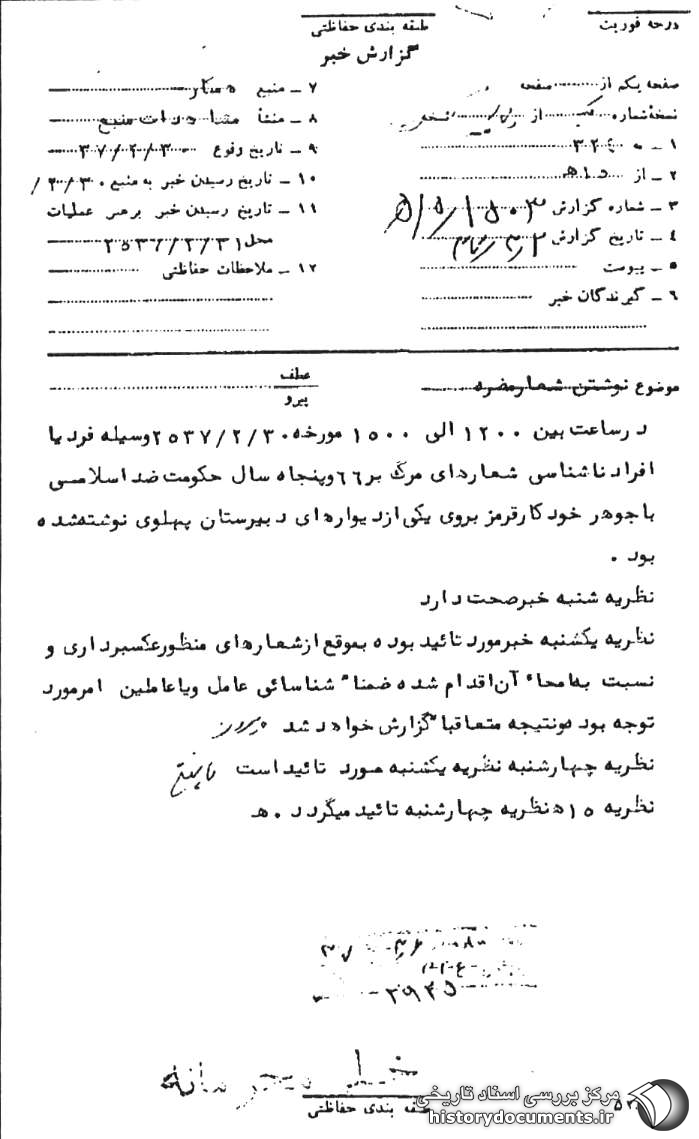 درجه فوریت
طبقه بندی حفاظتی
گزارش خبر
صفحه یکم از صفحه
نسخهٔ شماره یک از نسخه
۱ ـ به ۳۲۴
۲ ـ از ۱۵هـ
۳ ـ شماره گزارش
۴ ـ تاریخ گزارش
۵ ـ پیوست
۶ ـ گیرندگان خبر
۷ ـ منبع همکار
۸ ـ منشأ مشاهدات منبع
۹ ـ تاریخ وقوع ۳۷/۲/۳۰
۱۰ ـ تاریخ رسیدن خبر به منبع ۲/۳۰/
۱۱ ـ تاریخ رسیدن خبر برهبر عملیات
محل ۲۵۳۷/۲/۳۱
۱۲ ـ ملاحظات حفاظتی
موضوع نوشتن شعار مضره
عطف
پیرو
در ساعت بین ۱۲۰۰ الی ۱۵۰۰ مورخه ۲۵۳۷/۲/۳۰ وسیله فرد یا
افراد ناشناسی شعارهای مرگ بر ۶۶ و پنجاه سال حکومت ضد اسلامی
با جوهر خودکار قرمز بروی یکی از دیوارهای دبیرستان پهلوی نوشته شده
بود .
نظریه شنبه خبر صحت دارد
نظریه یکشنبه خبر مورد تائید بوده بموقع از شعارهای منظور عکسبرداری و
نسبت به امحاء آن اقدام شده ضمناً شناسائی عامل و یا عاملین امر مورد
توجه بوده و نتیجه متعاقباً گزارش خواهد شد
نظریه چهارشنبه نظریه یکشنبه مورد تائید است
نظریه ۱۵هـ نظریه چهارشنبه تائید میگردد . هـ
۳۹۴۵
خیلی محرمانه
طبقه بندی حفاظتی
مرکز بررسی اسناد تاریخی
historydocuments.ir